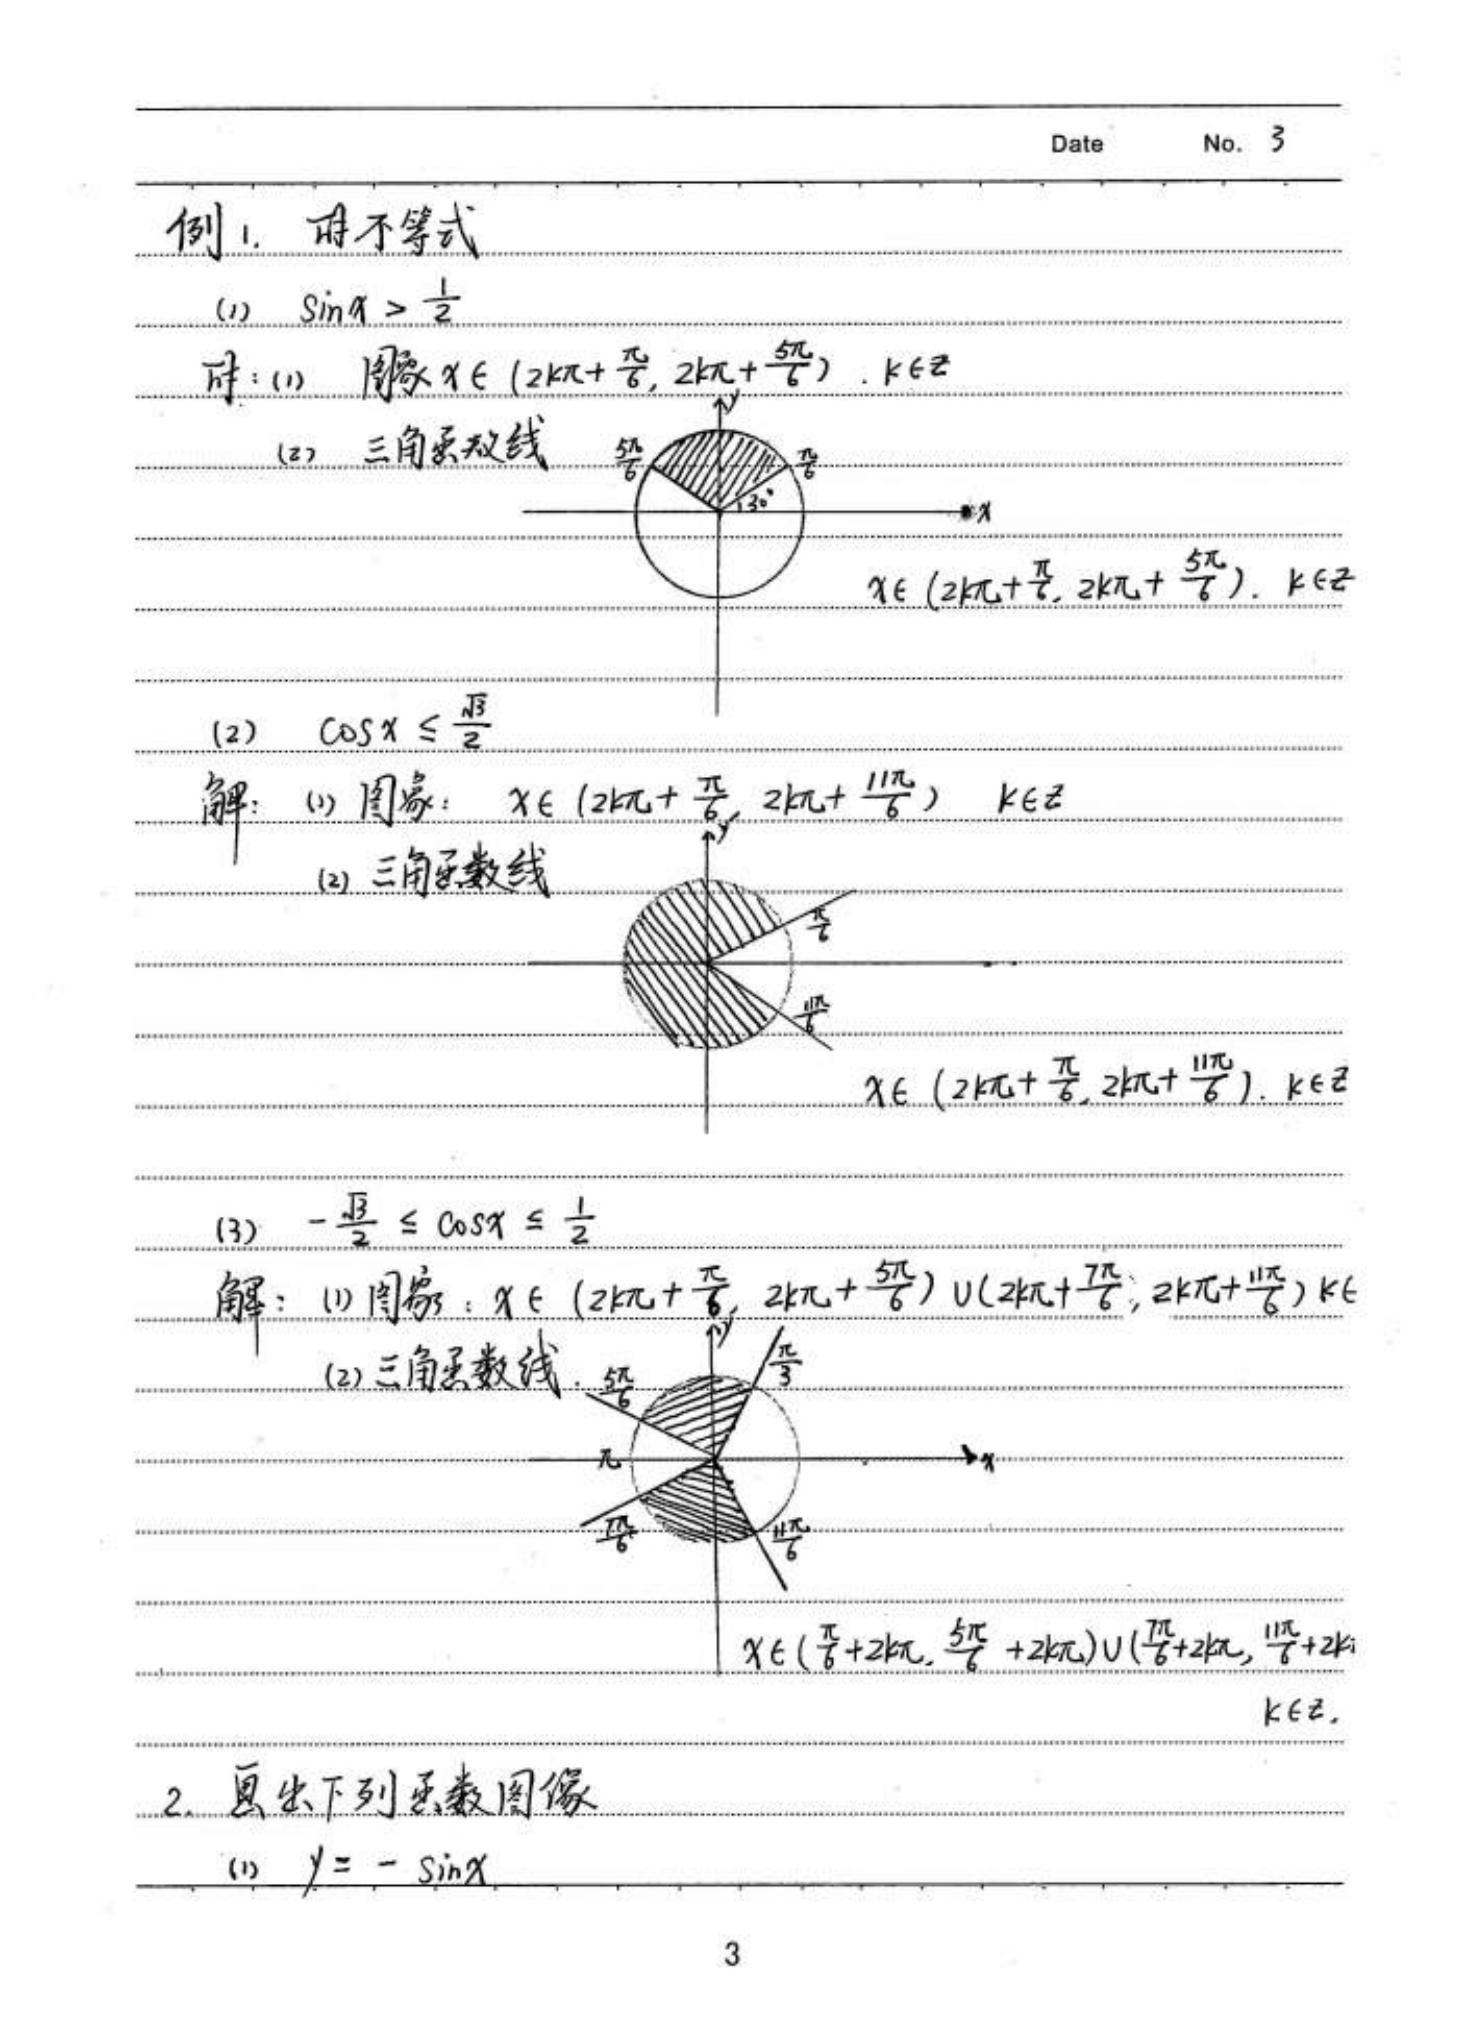 Date No. 3
例1. 解不等式
(1) sinx > 1/2
解:(1) 图象 x∈(2kπ+π/6, 2kπ+5π/6). k∈Z
y
(2) 三角函数线 5π/6 π/6
30° x
x∈(2kπ+π/6, 2kπ+5π/6). k∈Z
(2) cosx ≤ √3/2
解: (1) 图象: x∈(2kπ+π/6, 2kπ+11π/6) k∈Z
y
(2) 三角函数线
π/6
11π/6
x∈(2kπ+π/6, 2kπ+11π/6). k∈Z
(3) -√3/2 ≤ cosx ≤ 1/2
解: (1) 图象: x∈(2kπ+π/6, 2kπ+5π/6)∪(2kπ+7π/6, 2kπ+11π/6) k∈
y
(2) 三角函数线. 5π/6 π/3
π x
7π/6 11π/6
x∈(π/6+2kπ, 5π/6+2kπ)∪(7π/6+2kπ, 11π/6+2k
k∈Z.
2. 画出下列函数图像
(1) y = - sinx
3